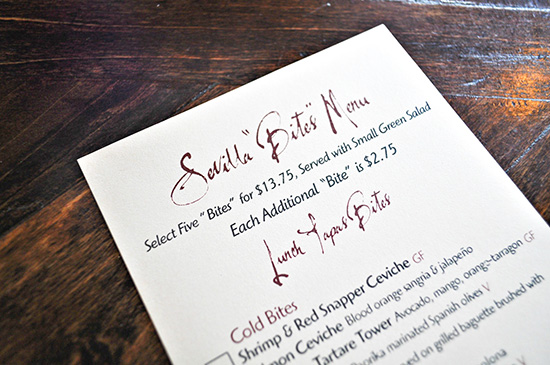 Sevilla "Bites" Menu
Select Five "Bites" for $13.75, Served with Small Green Salad
Each Additional "Bite" is $2.75
Lunch Tapas Bites
Cold Bites
Shrimp & Red Snapper Ceviche GF
Ceviche Blood orange sangria & jalapeño
Tartare Tower Avocado, mango, orange-tarragon GF
marinated Spanish olives V
on grilled baguette brushed with